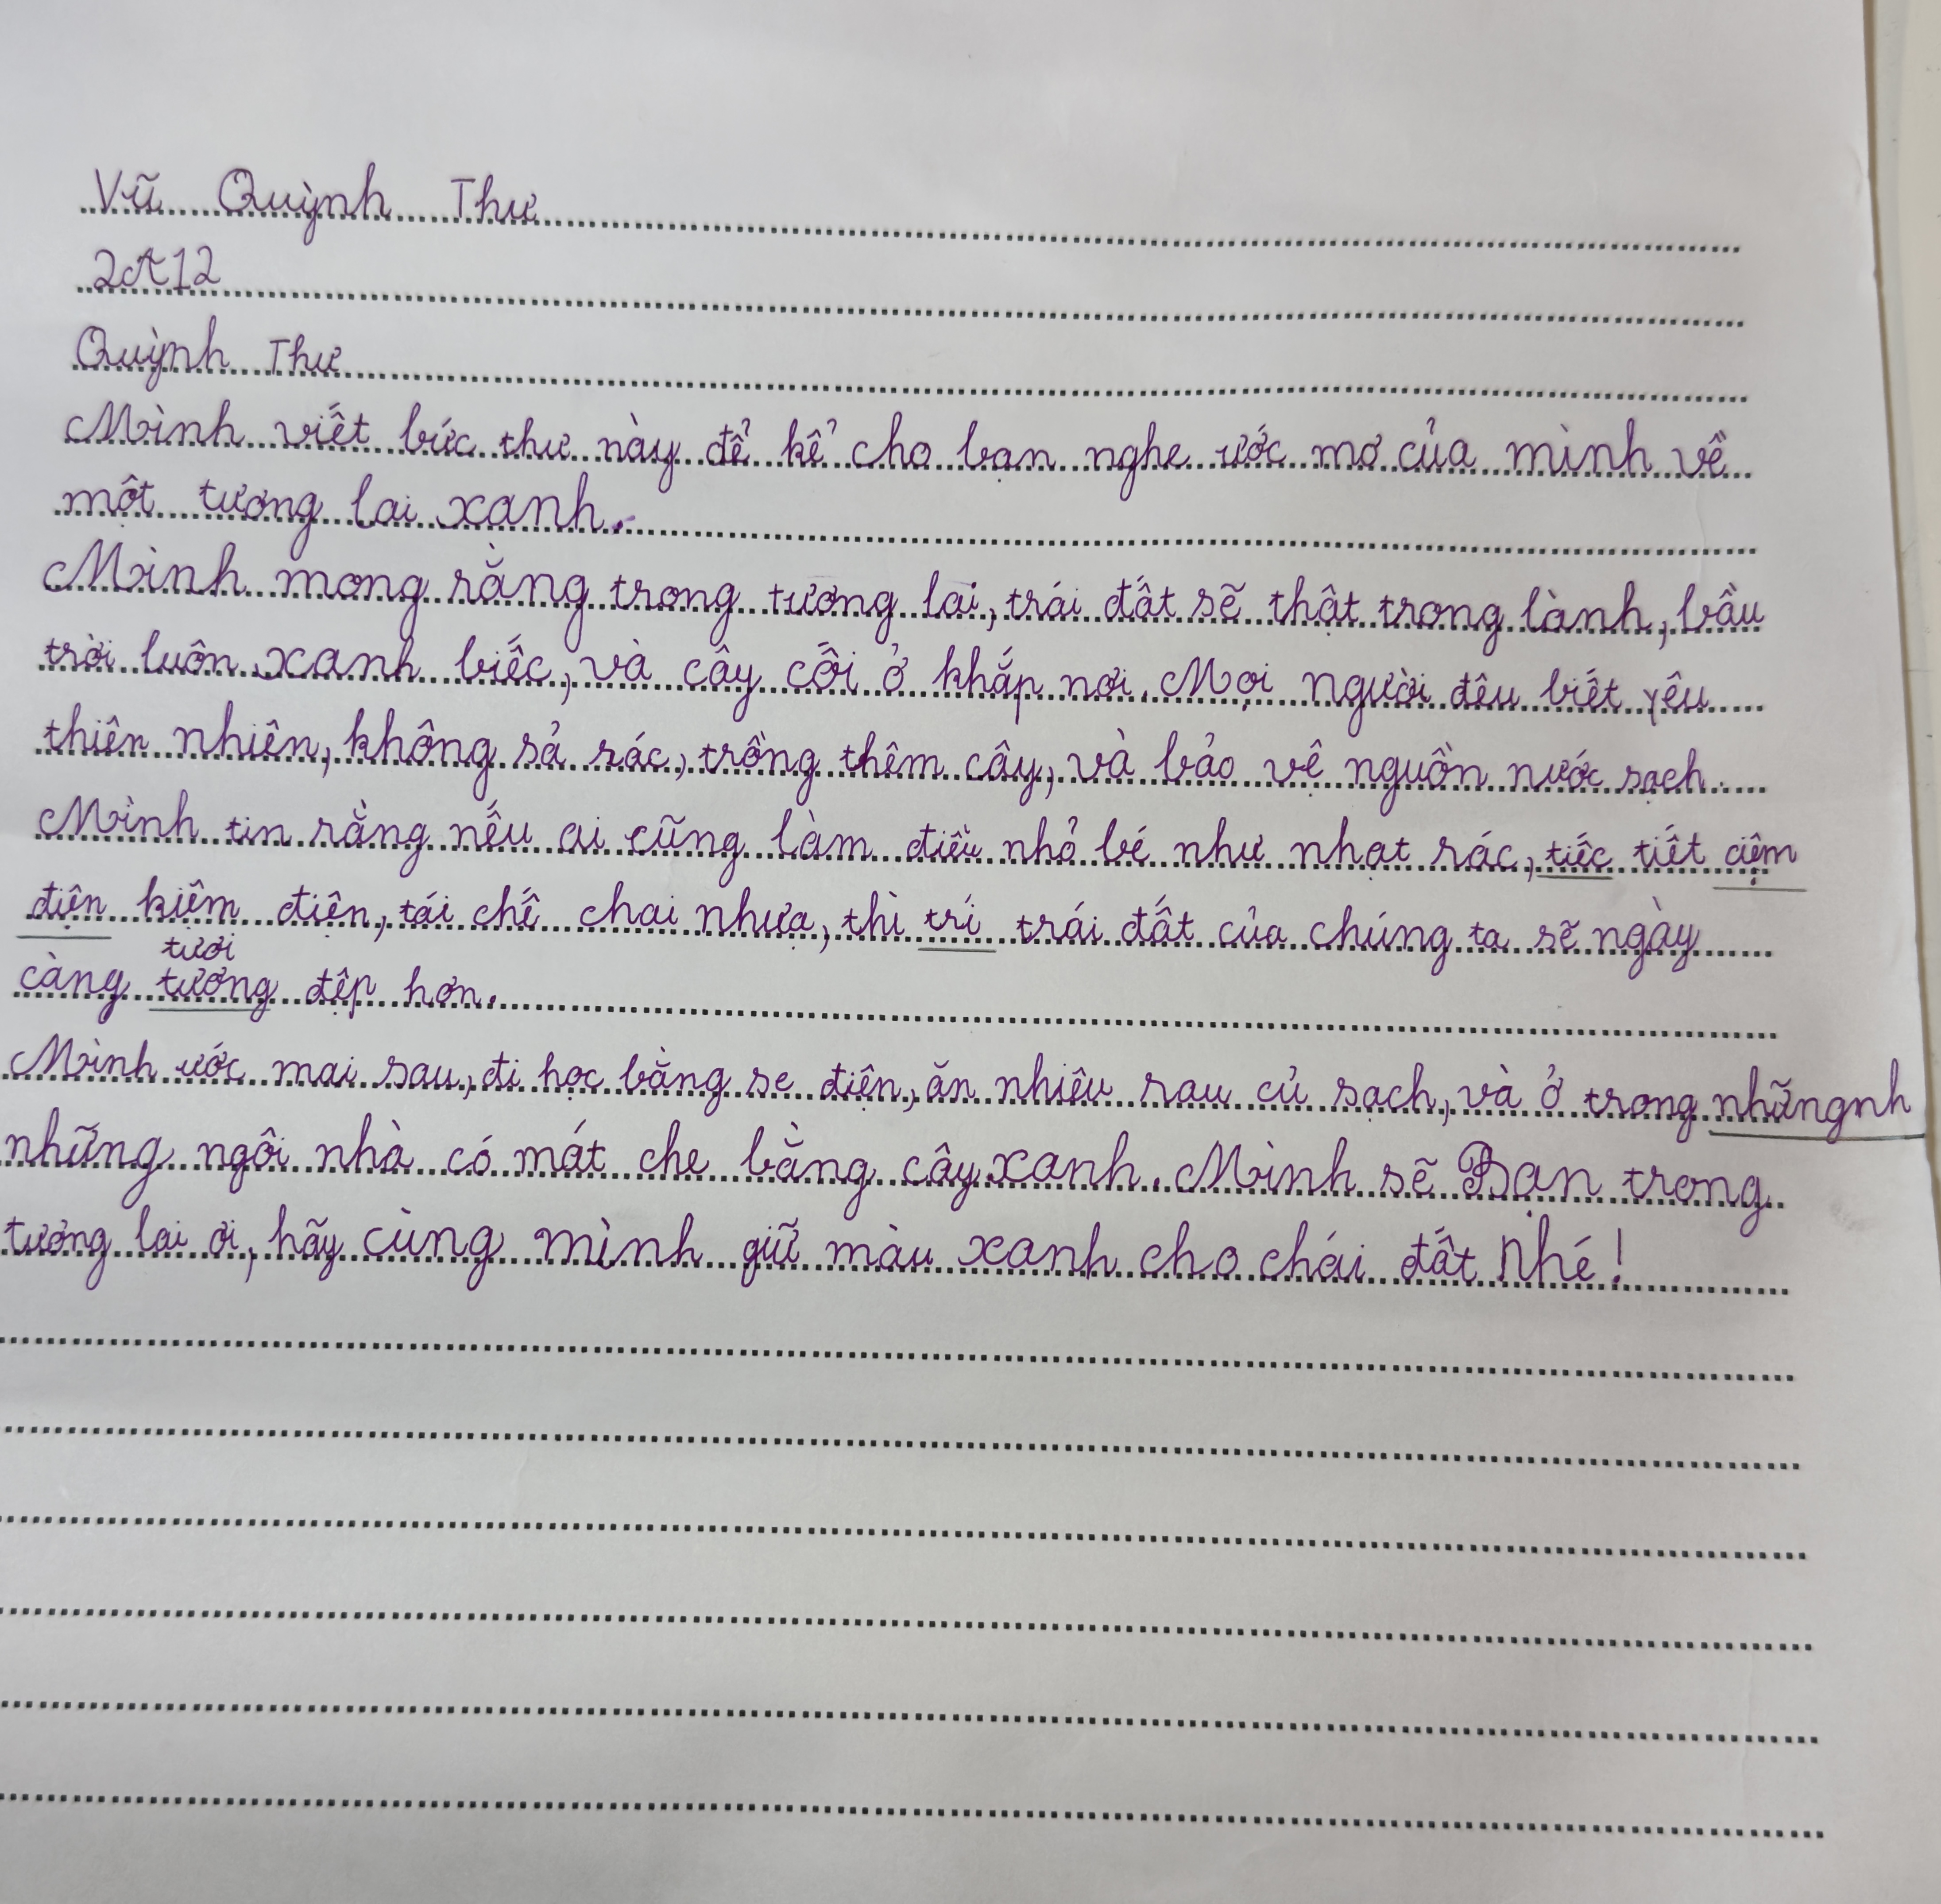 Vũ Quỳnh Thư
2A12
Quỳnh Thư
Mình viết bức thư này để kể cho bạn nghe ước mơ của mình về
một tương lai xanh.
Mình mong rằng trong tương lai, trái đất sẽ thật trong lành, bầu
trời luôn xanh biếc, và cây cối ở khắp nơi. Mọi người đêu biết yêu
thiên nhiên, không sả rác, trồng thêm cây, và bảo vệ nguồn nước sạch.
Mình tin rằng nếu ai cũng làm điều nhỏ bé như nhạt rác, tiếc tiết ciệm
điện kiệm điện, tái chế chai nhựa, thì trí trái đất của chúng ta sẽ ngày
tươi
càng tương đẹp hơn.
Mình ước mai sau, đi học bằng se điện, ăn nhiêu rau củ sạch, và ở trong nhữngnh
những ngôi nhà có mát che bằng cây xanh. Mình sẽ Bạn trong
tương lai ơi, hãy cùng mình giữ màu xanh cho chái đất Nhé!